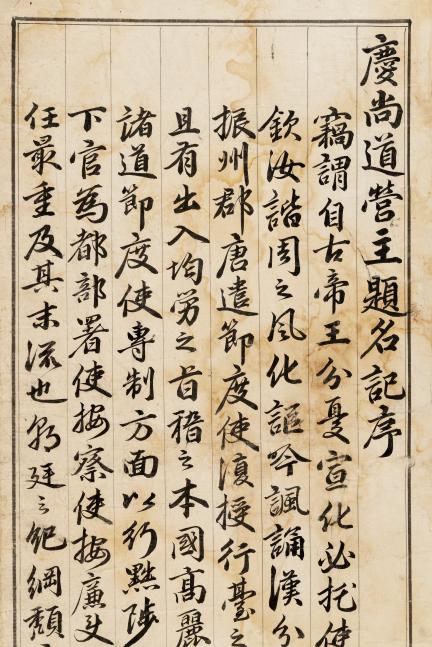 慶尚道營主題名記序
竊謂自古帝王分憂宣化必托使
欽汝諧周之風化謳吟諷誦漢分
振州郡唐遣節度使復授行臺之
且有出入均勞之旨稽之本國高麗
諸道節度使專制方面以行黜陟
下官為都部署使按察使按廉史
任最重及其末流也朝廷之紀綱頹